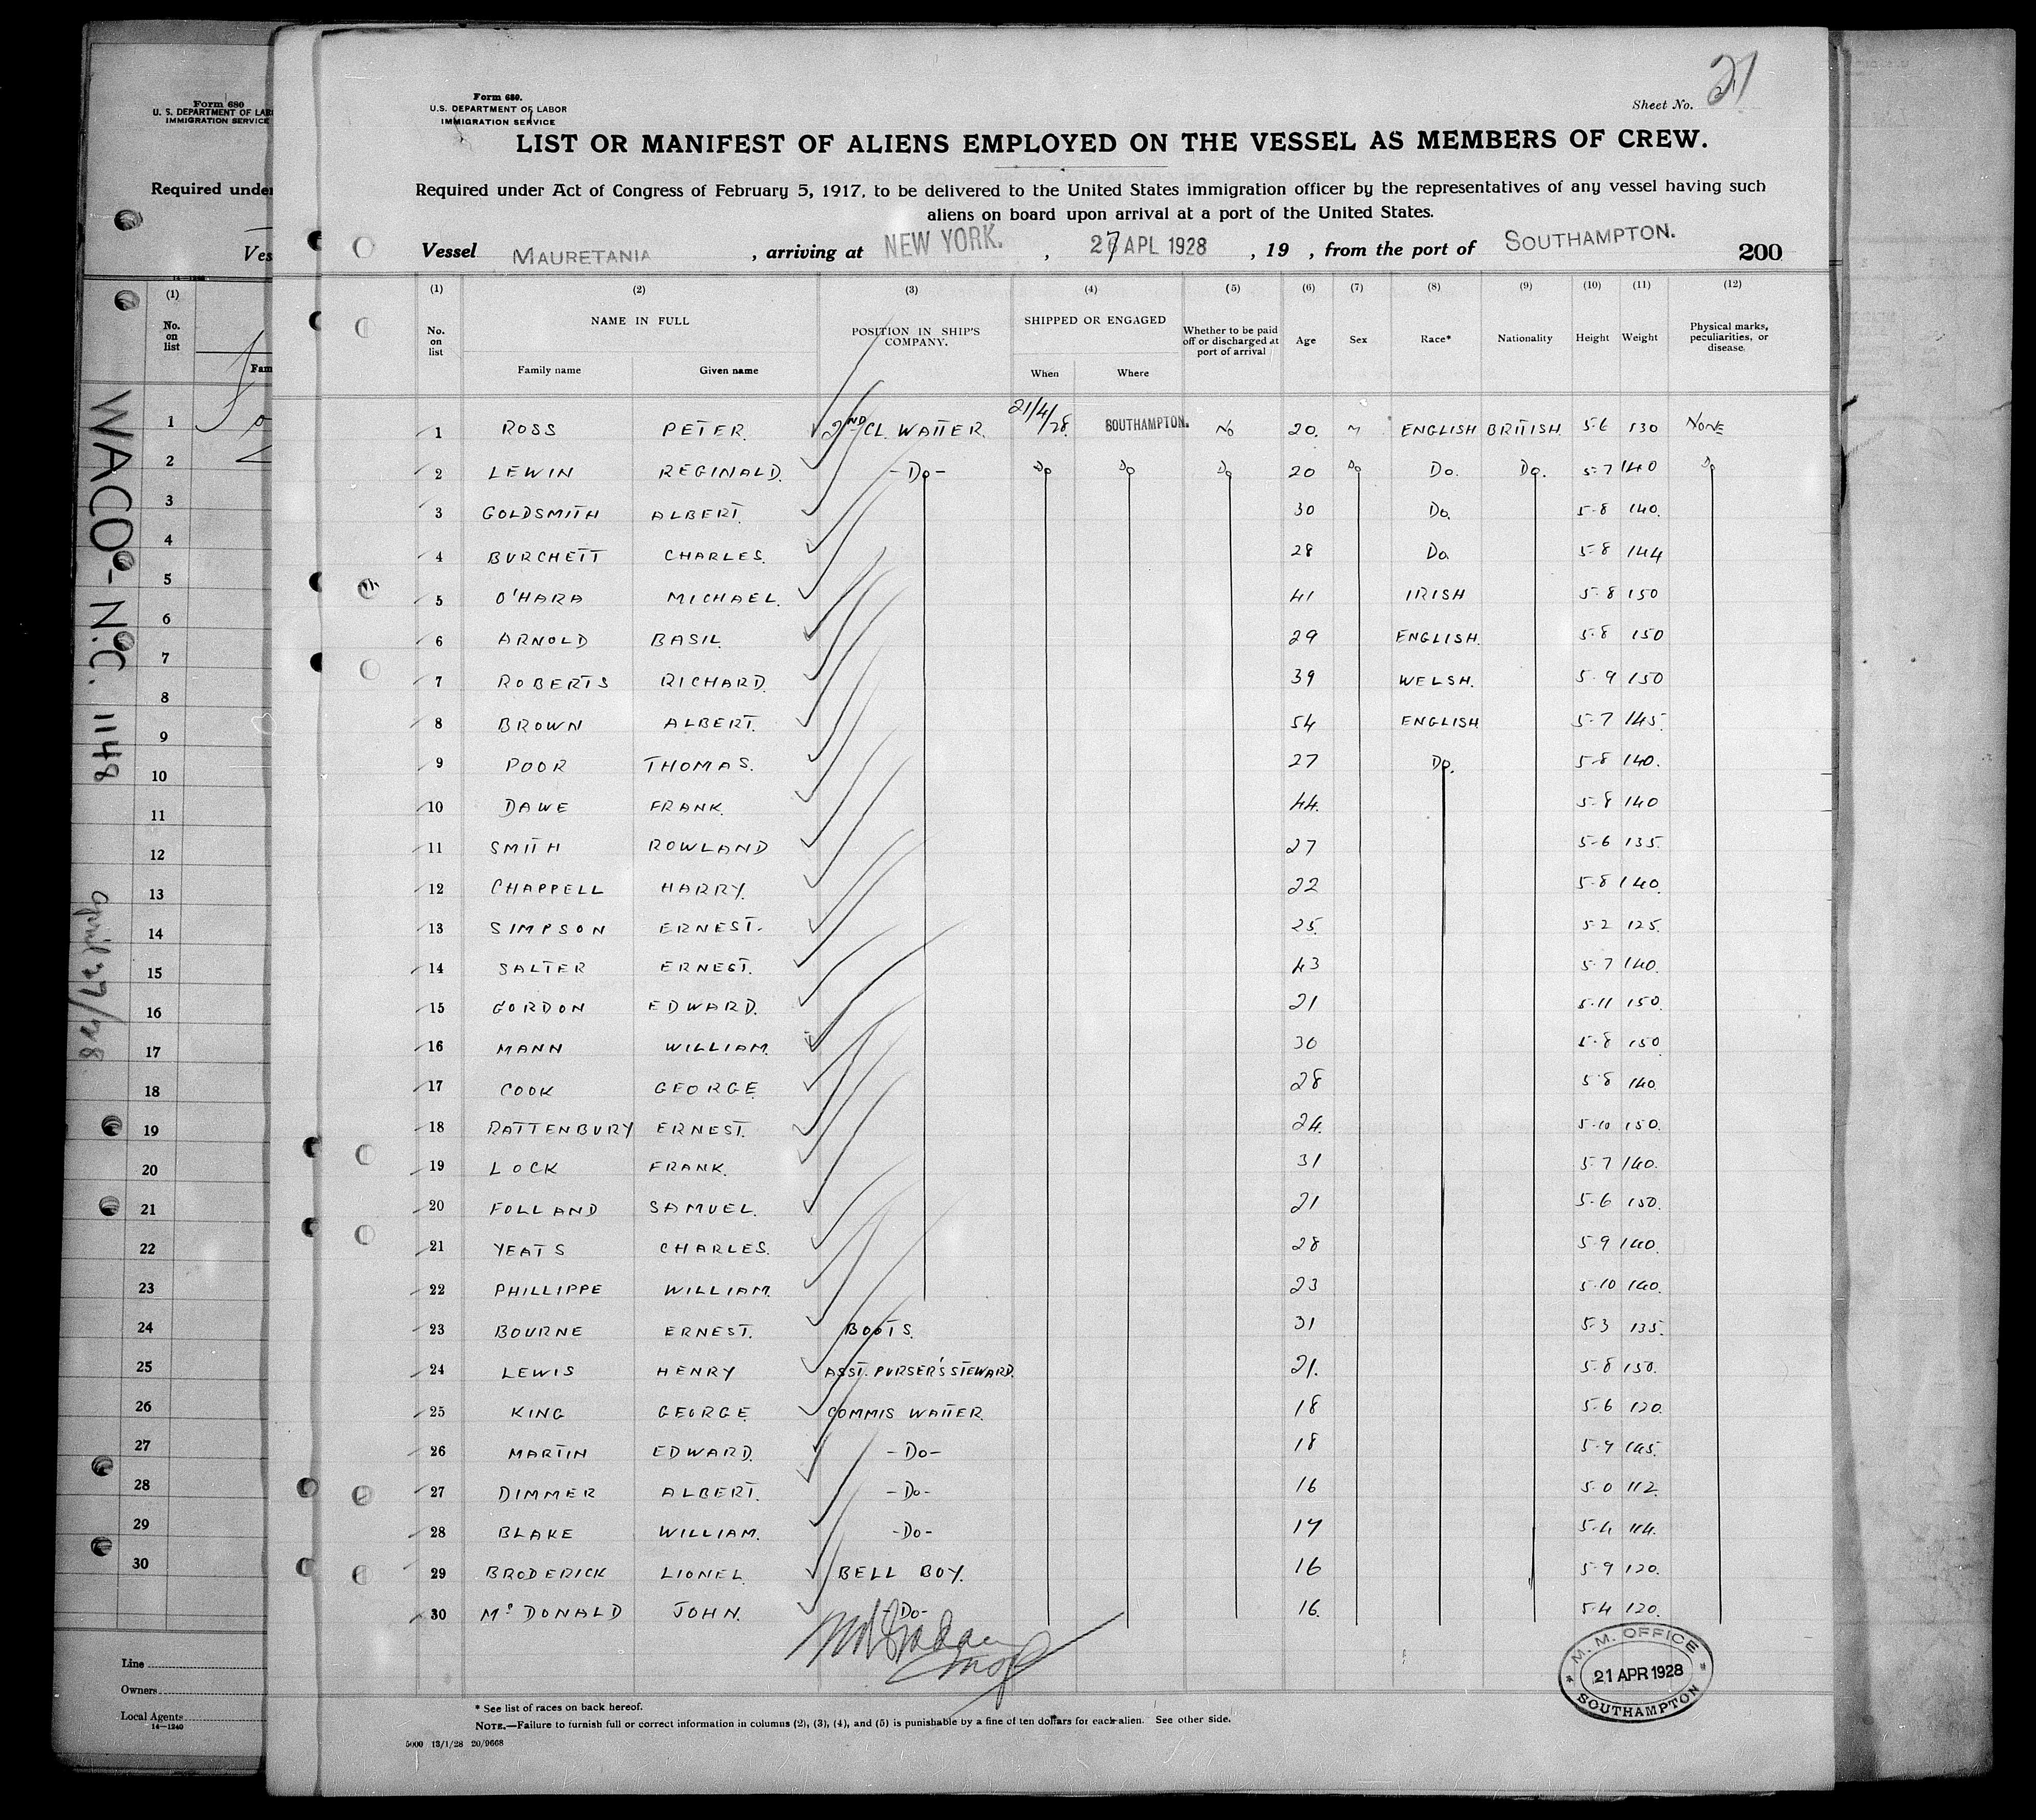 Form 680
U. S. DEPARTMENT OF LAB
IMMIGRATION SERVICE
Required under
Ves
(1)
No.
on
list
Fam
1
2
3
4
5
6
7
8
9
10
11
12
13
14
15
16
17
18
19
20
21
22
23
24
25
26
27
28
29
30
Line
Owners
Local Agents
14—1240
WACO - N.C. 1148
April 27/28
21
Sheet No.
Form 680.
U.S. DEPARTMENT OF LABOR
IMMIGRATION SERVICE
LIST OR MANIFEST OF ALIENS EMPLOYED ON THE VESSEL AS MEMBERS OF CREW.
Required under Act of Congress of February 5, 1917, to be delivered to the United States immigration officer by the representatives of any vessel having such
aliens on board upon arrival at a port of the United States.
Vessel MAURETANIA , arriving at NEW YORK. , 27 APL 1928 , 19 , from the port of SOUTHAMPTON. 200
(1) (2) (3) (4) (5) (6) (7) (8) (9) (10) (11) (12)
No. on list NAME IN FULL Family name Given name POSITION IN SHIP'S COMPANY. SHIPPED OR ENGAGED When Where Whether to be paid off or discharged at port of arrival Age Sex Race* Nationality Height Weight Physical marks, peculiarities, or disease.
1 ROSS PETER. 2ND CL. WAITER. 21/4/28. SOUTHAMPTON. No 20. M ENGLISH BRITISH. 5-6 130 NONE
2 LEWIN REGINALD. -Do- Do Do Do 20 Do Do. Do. 5-7 140 Do
3 GOLDSMITH ALBERT. 30 Do. 5-8 140.
4 BURCHETT CHARLES. 28 Do. 5-8 144
5 O'HARA MICHAEL. 41 IRISH 5-8 150
6 ARNOLD BASIL. 29 ENGLISH. 5-8 150
7 ROBERTS RICHARD. 39 WELSH. 5-9 150
8 BROWN ALBERT. 54 ENGLISH 5-7 145.
9 POOR THOMAS. 27 Do. 5-8 140.
10 DAWE FRANK. 44. 5-8 140
11 SMITH ROWLAND 27 5-6 135.
12 CHAPPELL HARRY. 22 5-8 140.
13 SIMPSON ERNEST. 25. 5-2 125.
14 SALTER ERNEST. 43 5-7 140.
15 GORDON EDWARD. 21 5-11 150.
16 MANN WILLIAM. 30 5-8 150
17 COOK GEORGE 28 5-8 140.
18 RATTENBURY ERNEST. 24. 5-10 150.
19 LOCK FRANK. 31 5-7 140.
20 FOLLAND SAMUEL. 21 5-6 150.
21 YEATS CHARLES. 28 5-9 140.
22 PHILLIPPE WILLIAM. 23 5-10 140.
23 BOURNE ERNEST. BOOTS. 31 5-3 135.
24 LEWIS HENRY ASST. PURSER'S STEWARD. 21. 5-8 150.
25 KING GEORGE COMMIS WAITER. 18 5-6 120.
26 MARTIN EDWARD. -Do- 18 5-9 145.
27 DIMMER ALBERT. -Do- 16 5-0 112.
28 BLAKE WILLIAM. -Do- 17 5-4 114.
29 BRODERICK LIONEL. BELL BOY. 16 5-9 120.
30 McDONALD JOHN. -Do- 16. 5-4 120.
M. M. OFFICE
21 APR 1928
SOUTHAMPTON
* See list of races on back hereof.
NOTE.—Failure to furnish full or correct information in columns (2), (3), (4), and (5) is punishable by a fine of ten dollars for each alien. See other side.
5000 13/1/28 20/9668